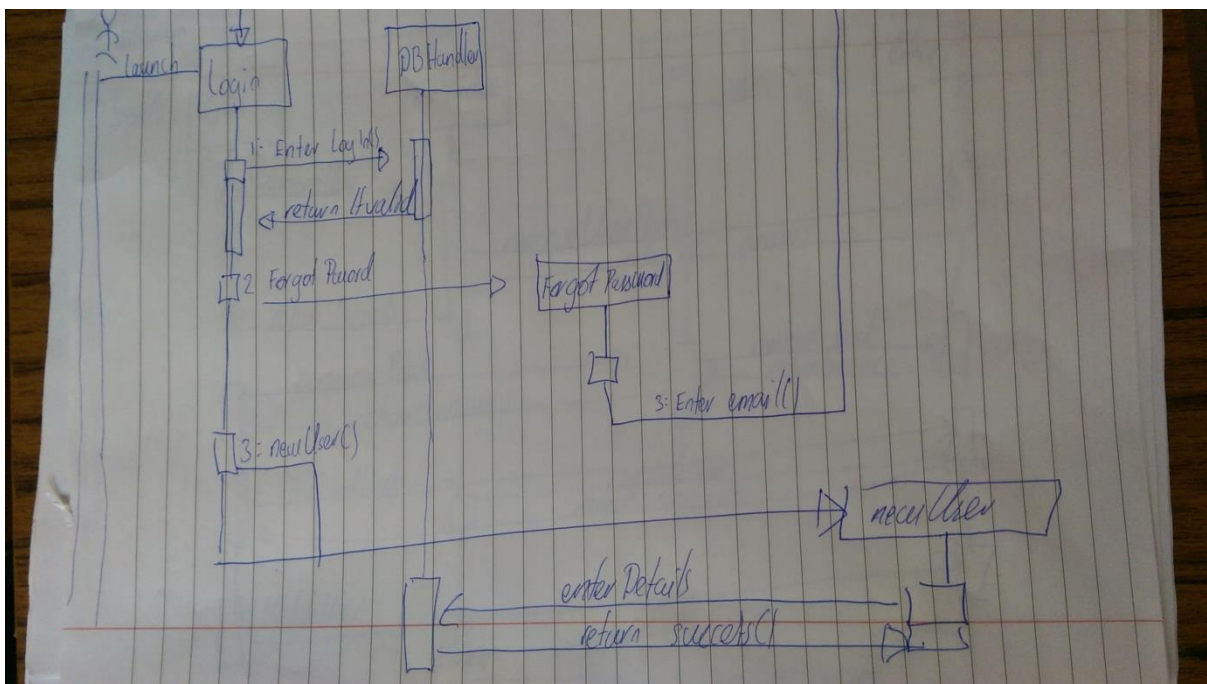 launch
Login
DBHandler
1: Enter Log Ins
return Ifvalid
2 Forgot
Forgot Password
3: Enter email()
3: newUser()
newUser
enter Details
return success()